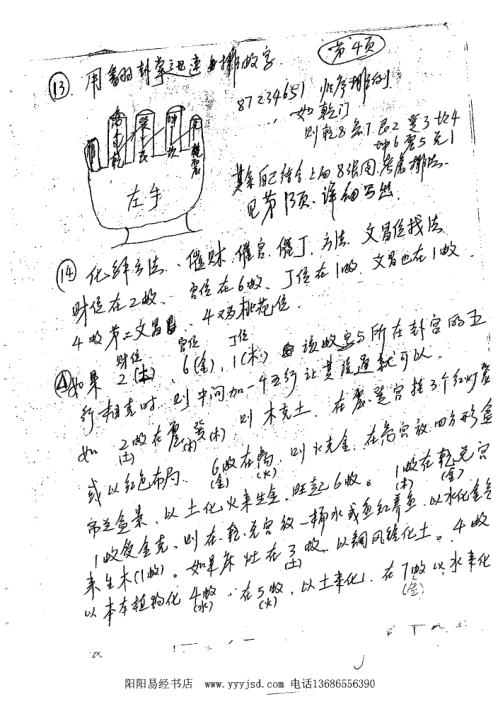 第4页
⑬ 用 卦掌迅速排敀字
87234651 顺序排列
如乾门
则乾8 兑7 艮2 巽3 坎4
坤6 震5 离1
其余自己结合上面8张图考虑排法
见第13页 详细写出
左手
⑭ 化解方法、催财、催官、催丁、方法、文昌位找法
财位在2敀、官位在6敀、丁位在1敀、文昌也在1敀、
4敀第二文昌、4又桃花位
财位 官位 丁位
如果 2(土)、6(金)、1(木) 该敀字与所在卦宫的五
行相克时，则中间加一个五行让其流通就可以.
如 2敀在震巽(木) 则木克土，在震巽宫挂3个红灯笼
(土)
或以红色布局. 6敀在离，则火克金，在离宫放四方形盒
(金) (火)
吊兰盆景，以土化火来生金，旺起6敀。1敀在乾兑宫
(木) (金)
1敀受金克，则在乾兑宫放一桶水或鱼缸养鱼，以水化金气
来生木(1敀)。如果床灶在3敀，以铜风铃化土。4敀
(土)
以木本植物化 4敀 在5敀，以土来化，在7敀以水来化
(水) (火) (金)
阳阳易经书店 www.yyyjsd.com 电话13686556390